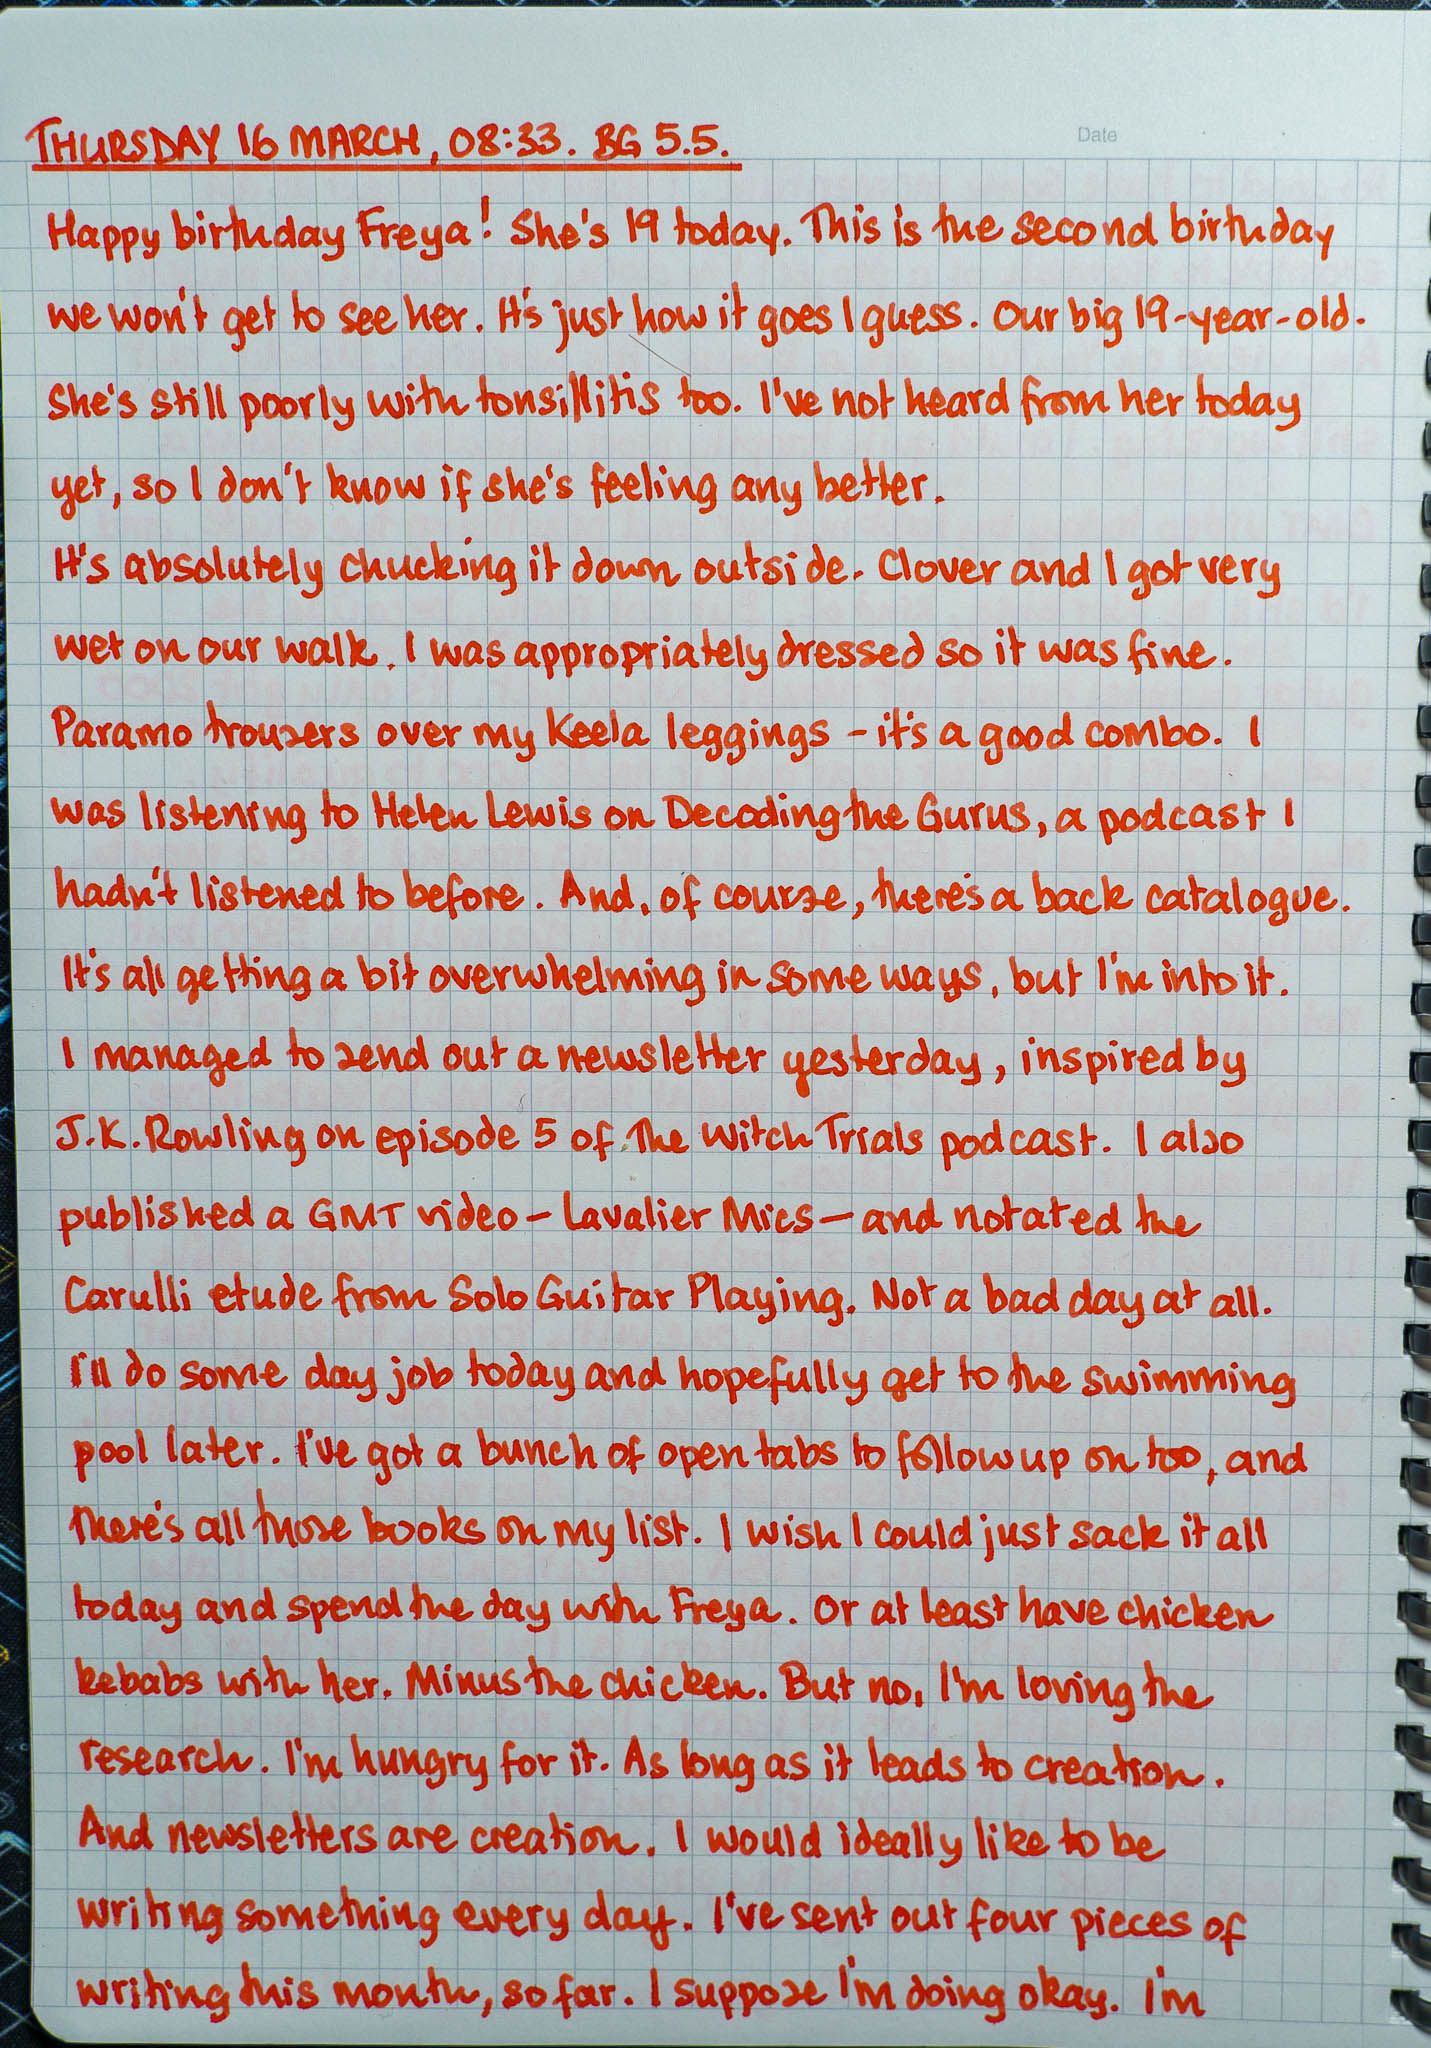 Date
THURSDAY 16 MARCH, 08:33. BG 5.5.
Happy birthday Freya! She's 19 today. This is the second birthday
we won't get to see her. It's just how it goes I guess. Our big 19-year-old.
She's still poorly with tonsillitis too. I've not heard from her today
yet, so I don't know if she's feeling any better.
It's absolutely chucking it down outside. Clover and I got very
wet on our walk. I was appropriately dressed so it was fine.
Paramo trousers over my Keela leggings - it's a good combo. I
was listening to Helen Lewis on Decoding the Gurus, a podcast I
hadn't listened to before. And, of course, there's a back catalogue.
It's all getting a bit overwhelming in some ways, but I'm into it.
I managed to send out a newsletter yesterday, inspired by
J.K. Rowling on episode 5 of The Witch Trials podcast. I also
published a GMT video - Lavalier Mics - and notated the
Carulli etude from Solo Guitar Playing. Not a bad day at all.
I'll do some day job today and hopefully get to the swimming
pool later. I've got a bunch of open tabs to follow up on too, and
there's all those books on my list. I wish I could just sack it all
today and spend the day with Freya. Or at least have chicken
kebabs with her. Minus the chicken. But no, I'm loving the
research. I'm hungry for it. As long as it leads to creation.
And newsletters are creation. I would ideally like to be
writing something every day. I've sent out four pieces of
writing this month, so far. I suppose I'm doing okay. I'm